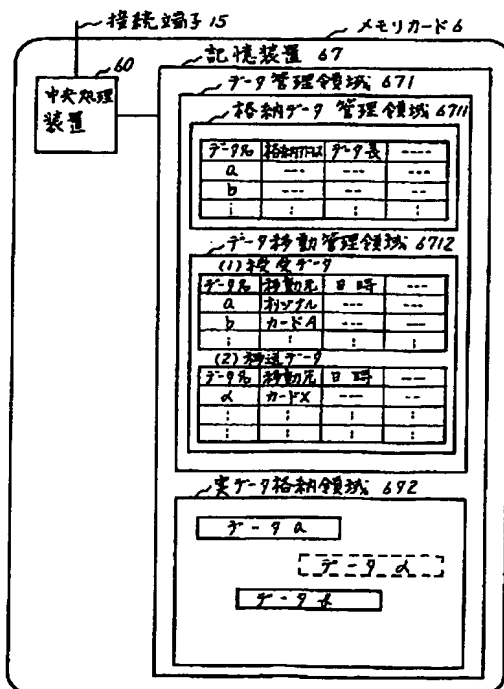 接続端子 15
メモリカード 6
60
記憶装置 67
中央処理
装置
データ管理領域 671
格納データ管理領域 6711
データ名 格納アドレス データ長 ----
a --- --- ---
b --- -- --
⋮ ⋮ ⋮ ⋮
データ移動管理領域 6712
(1) 授受データ
データ名 移動元 日時 ---
a オリジナル --- ---
b カードA --- ---
⋮ ⋮ ⋮ ⋮
(2) 移送データ
データ名 移動先 日時 ---
α カードX --- --
⋮ ⋮ ⋮ ⋮
⋮ ⋮ ⋮ ⋮
実データ格納領域 692
データ a
データ α
データ b